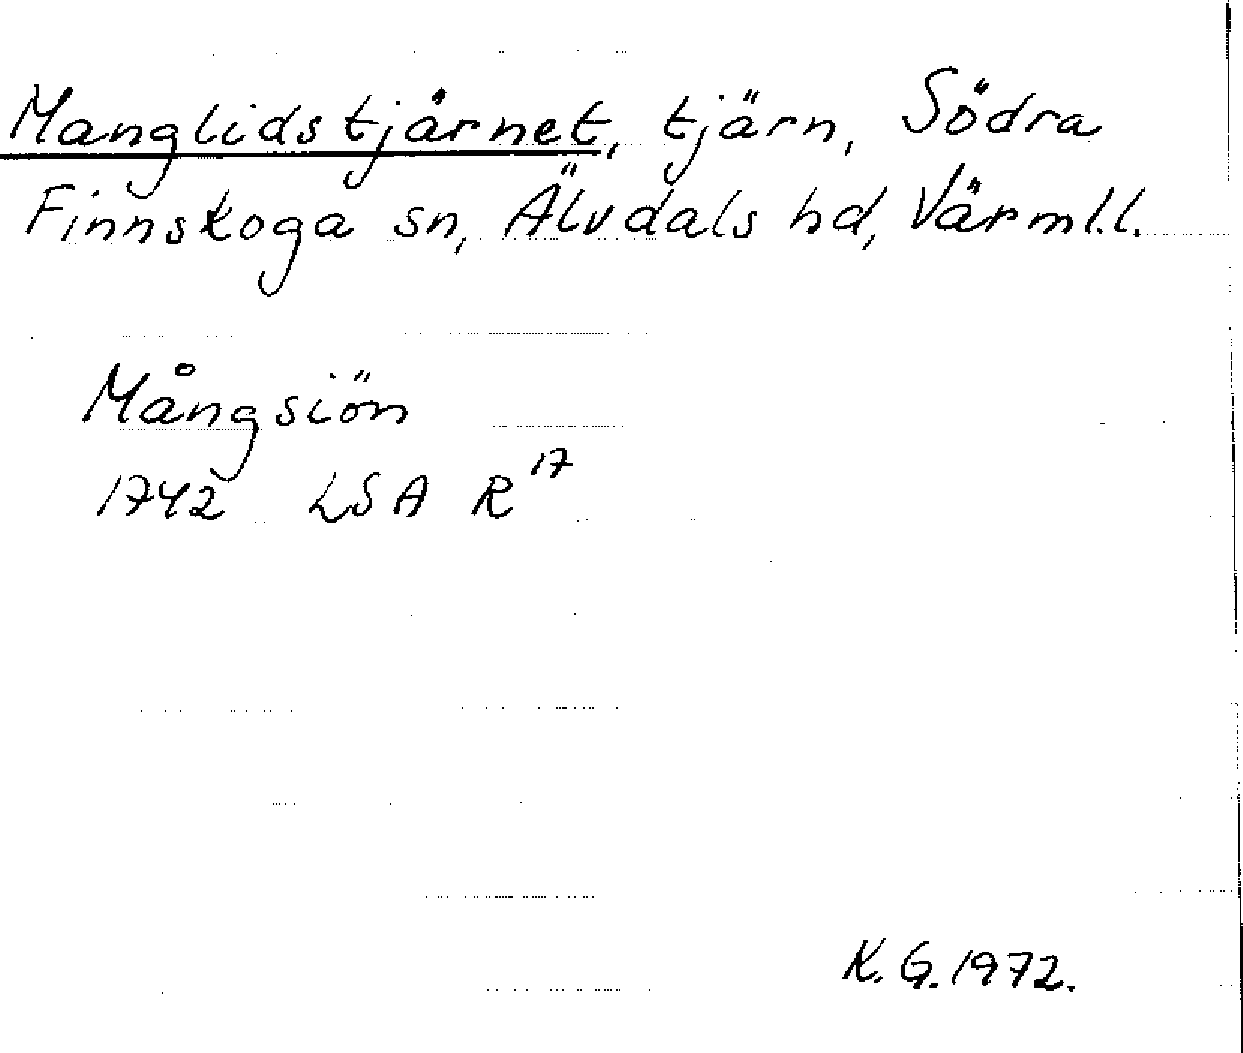 Manglidstjärnet, tjärn, Södra
Finnskoga sn, Älvdals hd, Värml.l.
Mångsiön
1742 LSA R 17
K.G. 1972.